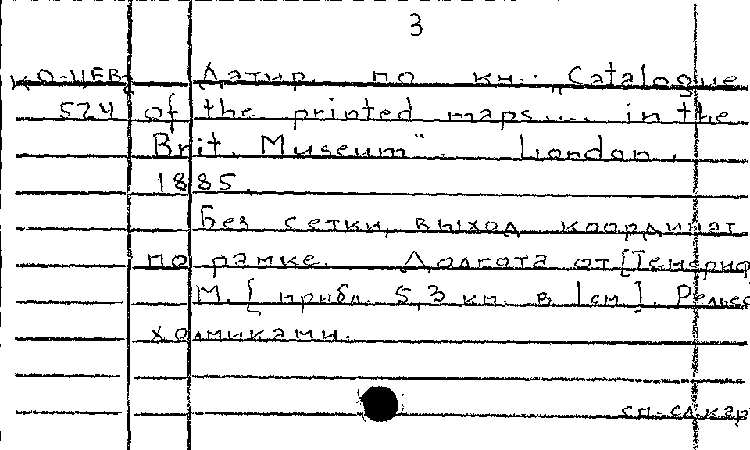 3
КО-ЦЕВ Датир. по кн.: „Catalogue
524 of the printed maps.... in the
Brit. Museum". London,
1885.
Без сетки, выход координат
по рамке. Долгота от [Тенериф
М. [прибл. 5,3 км. в 1см]. Рельеф
холмиками.